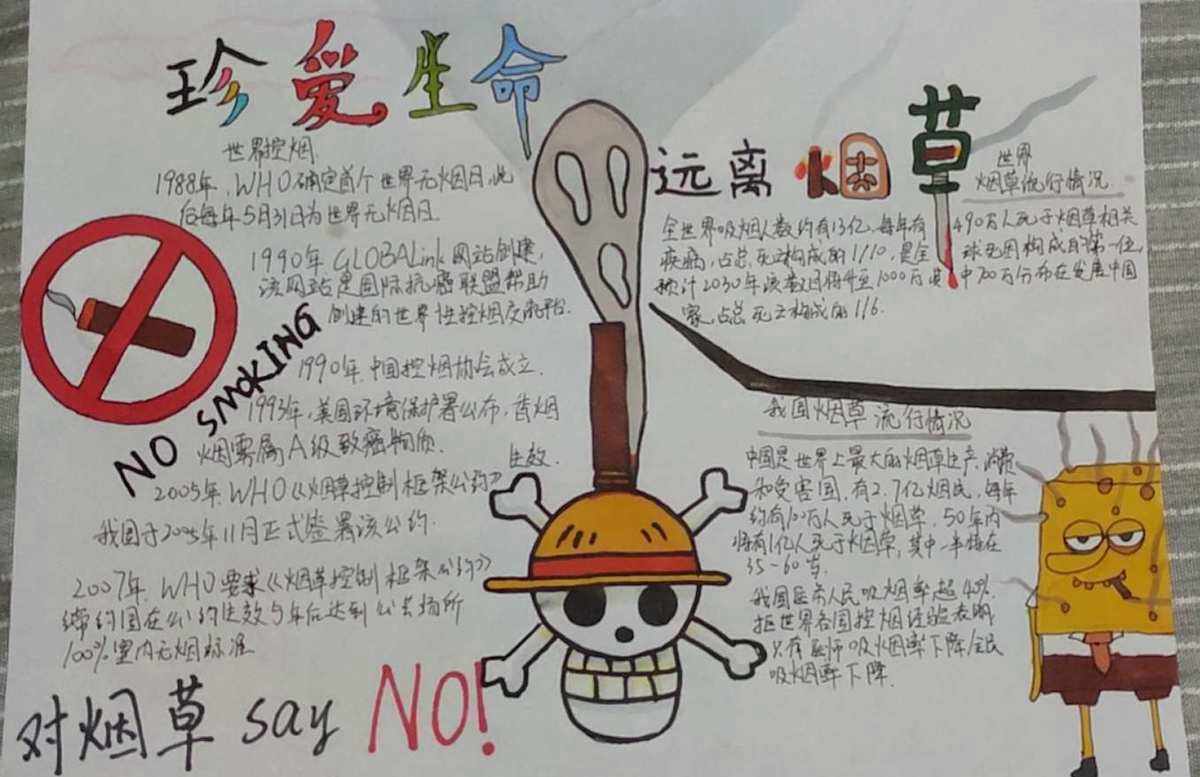 珍爱生命
远离烟草
世界控烟
1988年，WHO确定首个世界无烟日，此
后每年5月31日为世界无烟日.
1990年GLOBALink网站创建，
该网站是国际抗癌联盟帮助
创建的世界性控烟交流平台.
1990年.中国控烟协会成立.
1993年，美国环境保护署公布，
烟雾属A级致癌物质.
生效.
2005年WHO《烟草控制框架公约》
我国于 年11月正式签署该公约.
2007年.WHO要求《烟草控制框架公约》
缔约国在公约生效5年后达到公共场所
100%室内无烟标准
NO SMOKING
对烟草 say NO!
世界
烟草流行情况
全世界吸烟人数约有13亿，每年有490万人死于烟草相关
疾病，占总死亡构成的1/10，是全球死因构成 第一位.
预计2030年该数目将升至1000万 中700万分布在发展中国
家，占总死亡构成的1/6.
我国烟草流行情况
中国是世界上最大的烟草生产，消费
和受害国，有2.7亿烟民，每年
约有100万人死于烟草，50年内
将有1亿人死于烟草，其中一半将在
35-60岁.
我国 人民吸烟率超 %.
据世界各国控烟经验表明
只有医师吸烟率下降/全民
吸烟率下降.